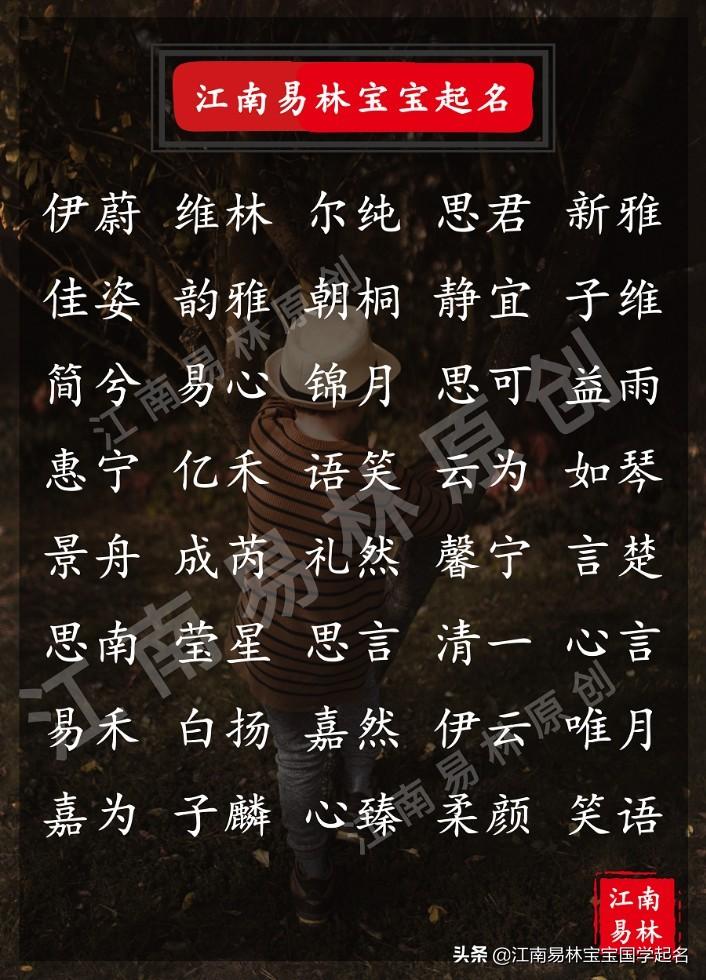 江南易林宝宝起名
伊蔚 维林 尔纯 思君 新雅
佳姿 韵雅 朝桐 静宜 子维
简兮 易心 锦月 思可 益雨
惠宁 亿禾 语笑 云为 如琴
景舟 成芮 礼然 馨宁 言楚
思南 莹星 思言 清一 心言
易禾 白扬 嘉然 伊云 唯月
嘉为 子麟 心臻 柔颜 笑语
江南易林原创
江南易林原创
江南易林原创
江南
易林
头条 @江南易林宝宝国学起名